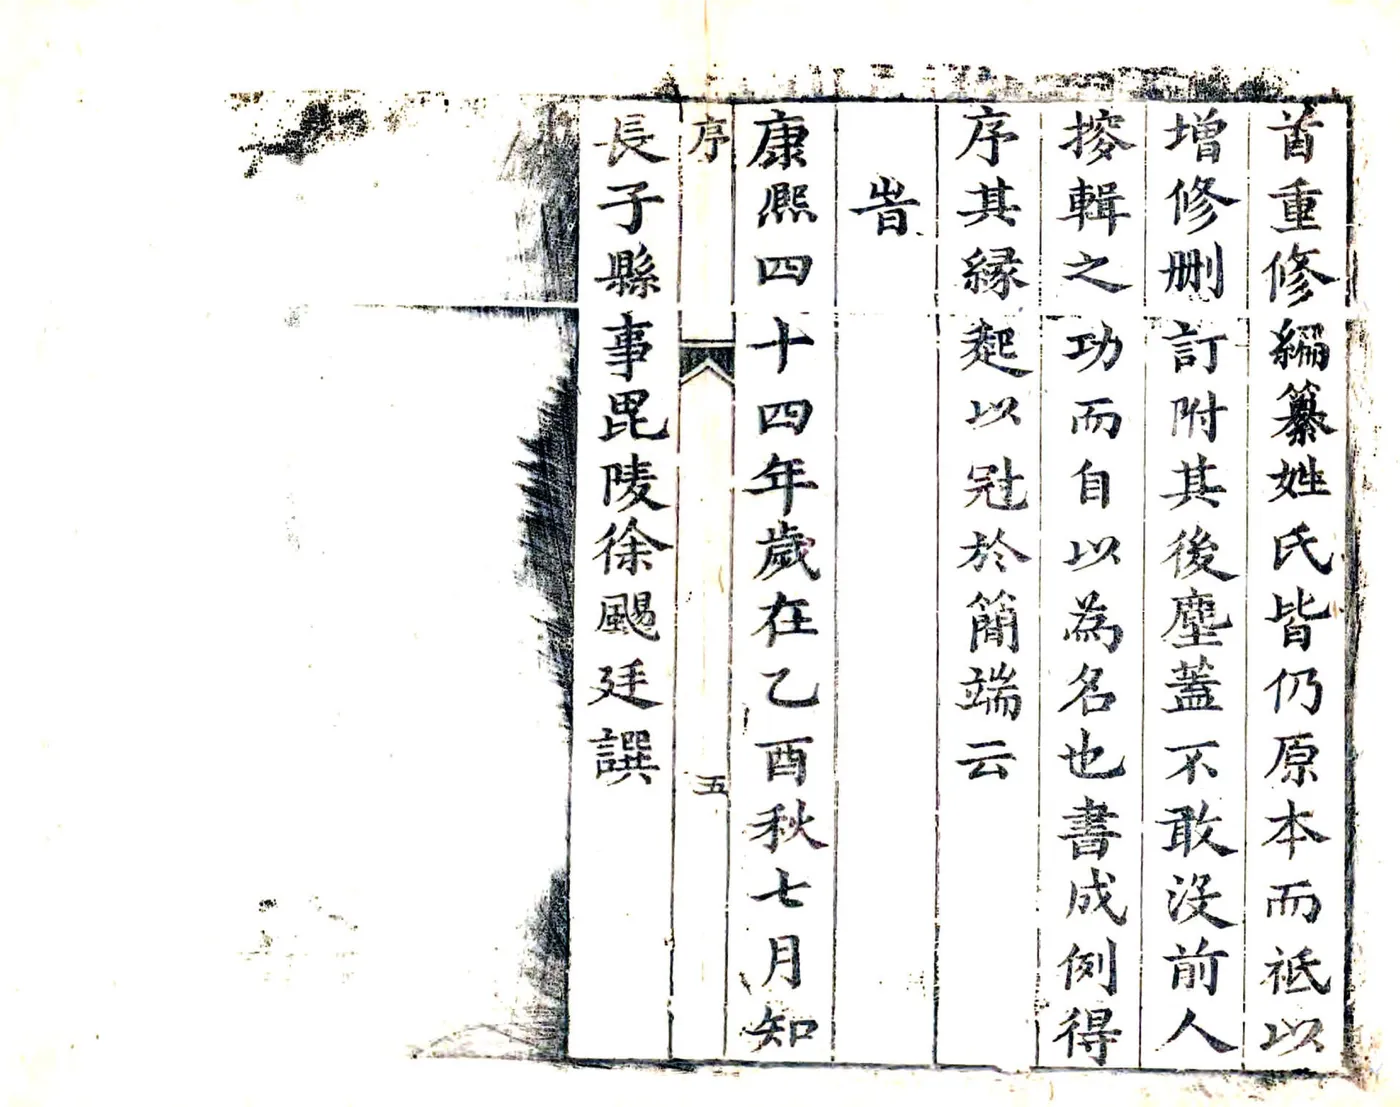 首重修編纂姓氏皆仍原本而祗以
增修刪訂附其後塵蓋不敢沒前人
搜輯之功而自以為名也書成例得
序其緣起以冠於簡端云
旹
康熙四十四年歲在乙酉秋七月知
序 五
長子縣事毘陵徐颺廷譔